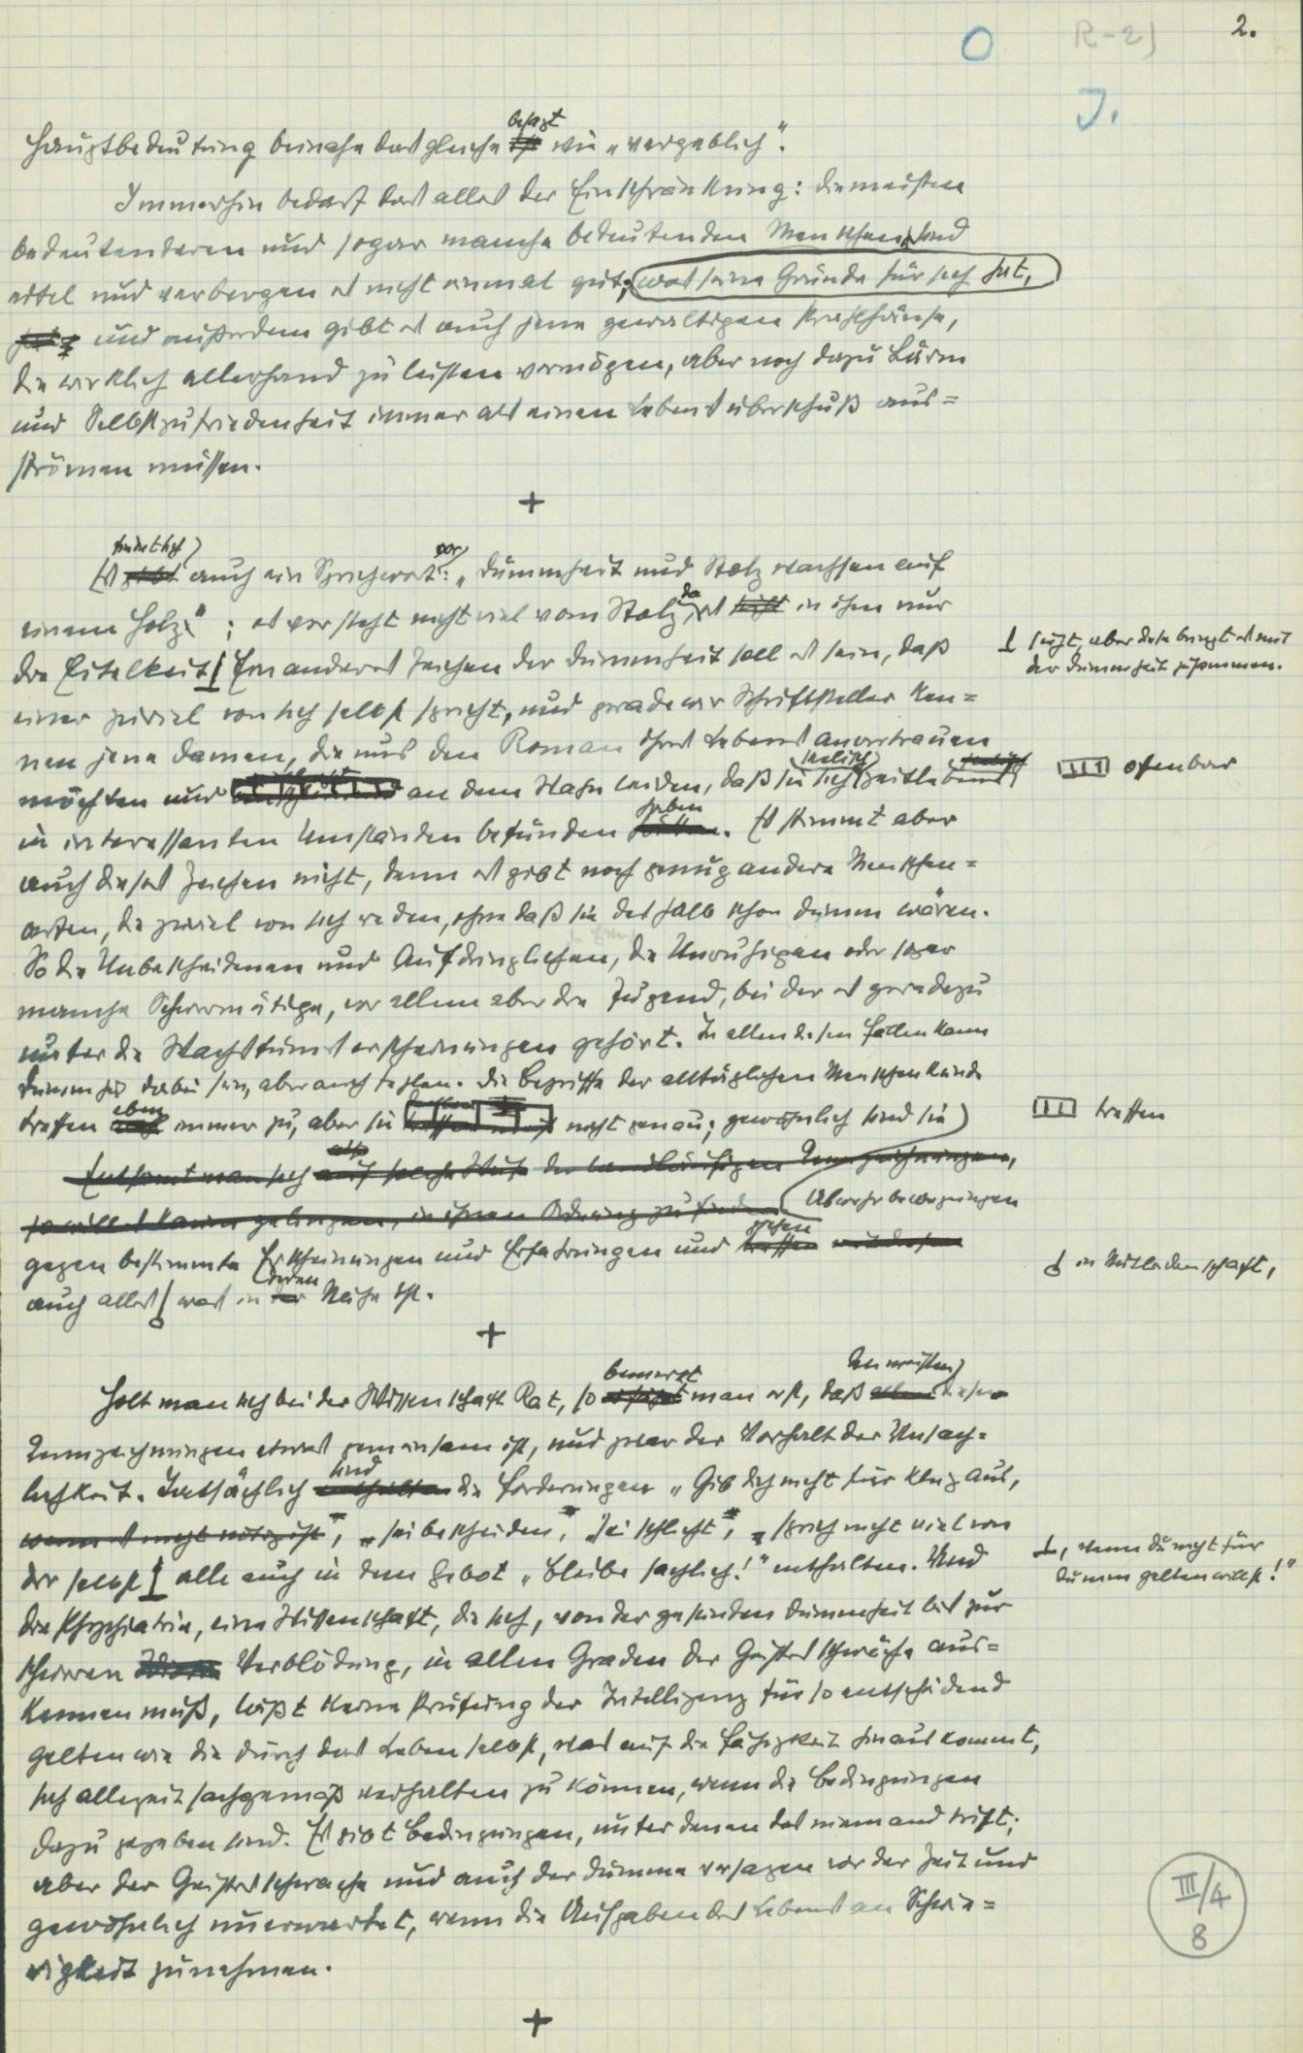 2.
R-2)
J.
besagt
Hauptbedeutung beinahe das gleiche ist wie „vergeblich“.
Immerhin bedarf das alles der Einschränkung: die meisten
bedeutenderen und sogar manche bedeutenden Menschen sind
eitel und verbergen es nicht einmal gut; was seine Gründe für sich hat,
und außerdem gibt es auch jene gewaltigen Prahlhänse,
die wirklich allerhand zu leisten vermögen, aber noch dazu Lärm
und Selbstzufriedenheit immer als einen Lebensüberschuß aus=
strömen müssen.
+
findet sich vor
Es gibt auch ein Sprichwort: „Dummheit und Stolz wachsen auf
da
einem Holz“; es versteht nicht viel vom Stolz, es sieht in ihm nur
die Eitelkeit Ein anderes Zeichen der Dummheit soll es sein, daß
⊥ sieht, aber diese bringt es mit
der Dummheit zusammen.
einer zuviel von sich selbst spricht, und gerade wir Schriftsteller ken=
nen jene Damen, die uns den Roman ihres Lebens anvertrauen
seelisch
möchten und an dem Wahn leiden, daß sie sich zeitlebens
offenbar
haben
in interessanten Umständen befunden hätten. Es stimmt aber
auch dieses Zeichen nicht, denn es gibt noch genug andere Menschen=
arten, die zuviel von sich reden, ohne daß sie deshalb schon dumm wären.
So die Unbescheidenen und Aufdringlichen, die Unruhigen oder sogar
manche Schwermütige, vor allem aber die Jugend, bei der es geradezu
unter die Wachstumserscheinungen gehört. In allen diesen Fällen kann
Dummheit dabei sein, aber auch fehlen. Die Begriffe der alltäglichen Menschenkunde
eben
treffen immer zu, aber sie nicht genau; gewöhnlich sind sie
treffen
also
Entsinnt man sich auf solche Weise der landläufigen Kennzeichnungen,
so will es kaum gelingen, in ihnen Ordnung zu finden Abwehrbewegungen
ziehen
gegen bestimmte Erscheinungen und Erfahrungen und
in Mitleidenschaft,
deren
auch alles was in der Nähe ist.
+
bemerkt den meisten
Holt man sich bei der Wissenschaft Rat, so man erst, daß allen diesen
Kennzeichnungen etwas gemeinsam ist, und zwar der Vorhalt der Unsach=
sind
lichkeit. Tatsächlich enthalten die Forderungen „Gib dich nicht für klug aus,
wenn es nicht nötig ist“, „sei bescheiden“, „sei schlicht“, „sprich nicht viel von
dir selbst alle auch in dem Gebot „Bleibe sachlich!“ enthalten. Und
⊥, wenn du nicht für
dumm gelten willst!“
die Psychiatrie, eine Wissenschaft, die sich, von der gesunden Dummheit bis zur
schweren Verblödung, in allen Graden der Geistesschwäche aus=
kennen muß, läßt keine Prüfung der Intelligenz für so entscheidend
gelten wie die durch das Leben selbst, was auf die Fähigkeit hinauskommt,
sich allezeit sachgemäß verhalten zu können, wenn die Bedingungen
dazu gegeben sind. Es gibt Bedingungen, unter denen das niemand trifft;
aber der Geistesschwache und auch der Dumme versagen vor der Zeit und
gewöhnlich unerwartet, wenn die Aufgaben des Lebens an Schwie=
rigkeit zunehmen.
III/4
8
+